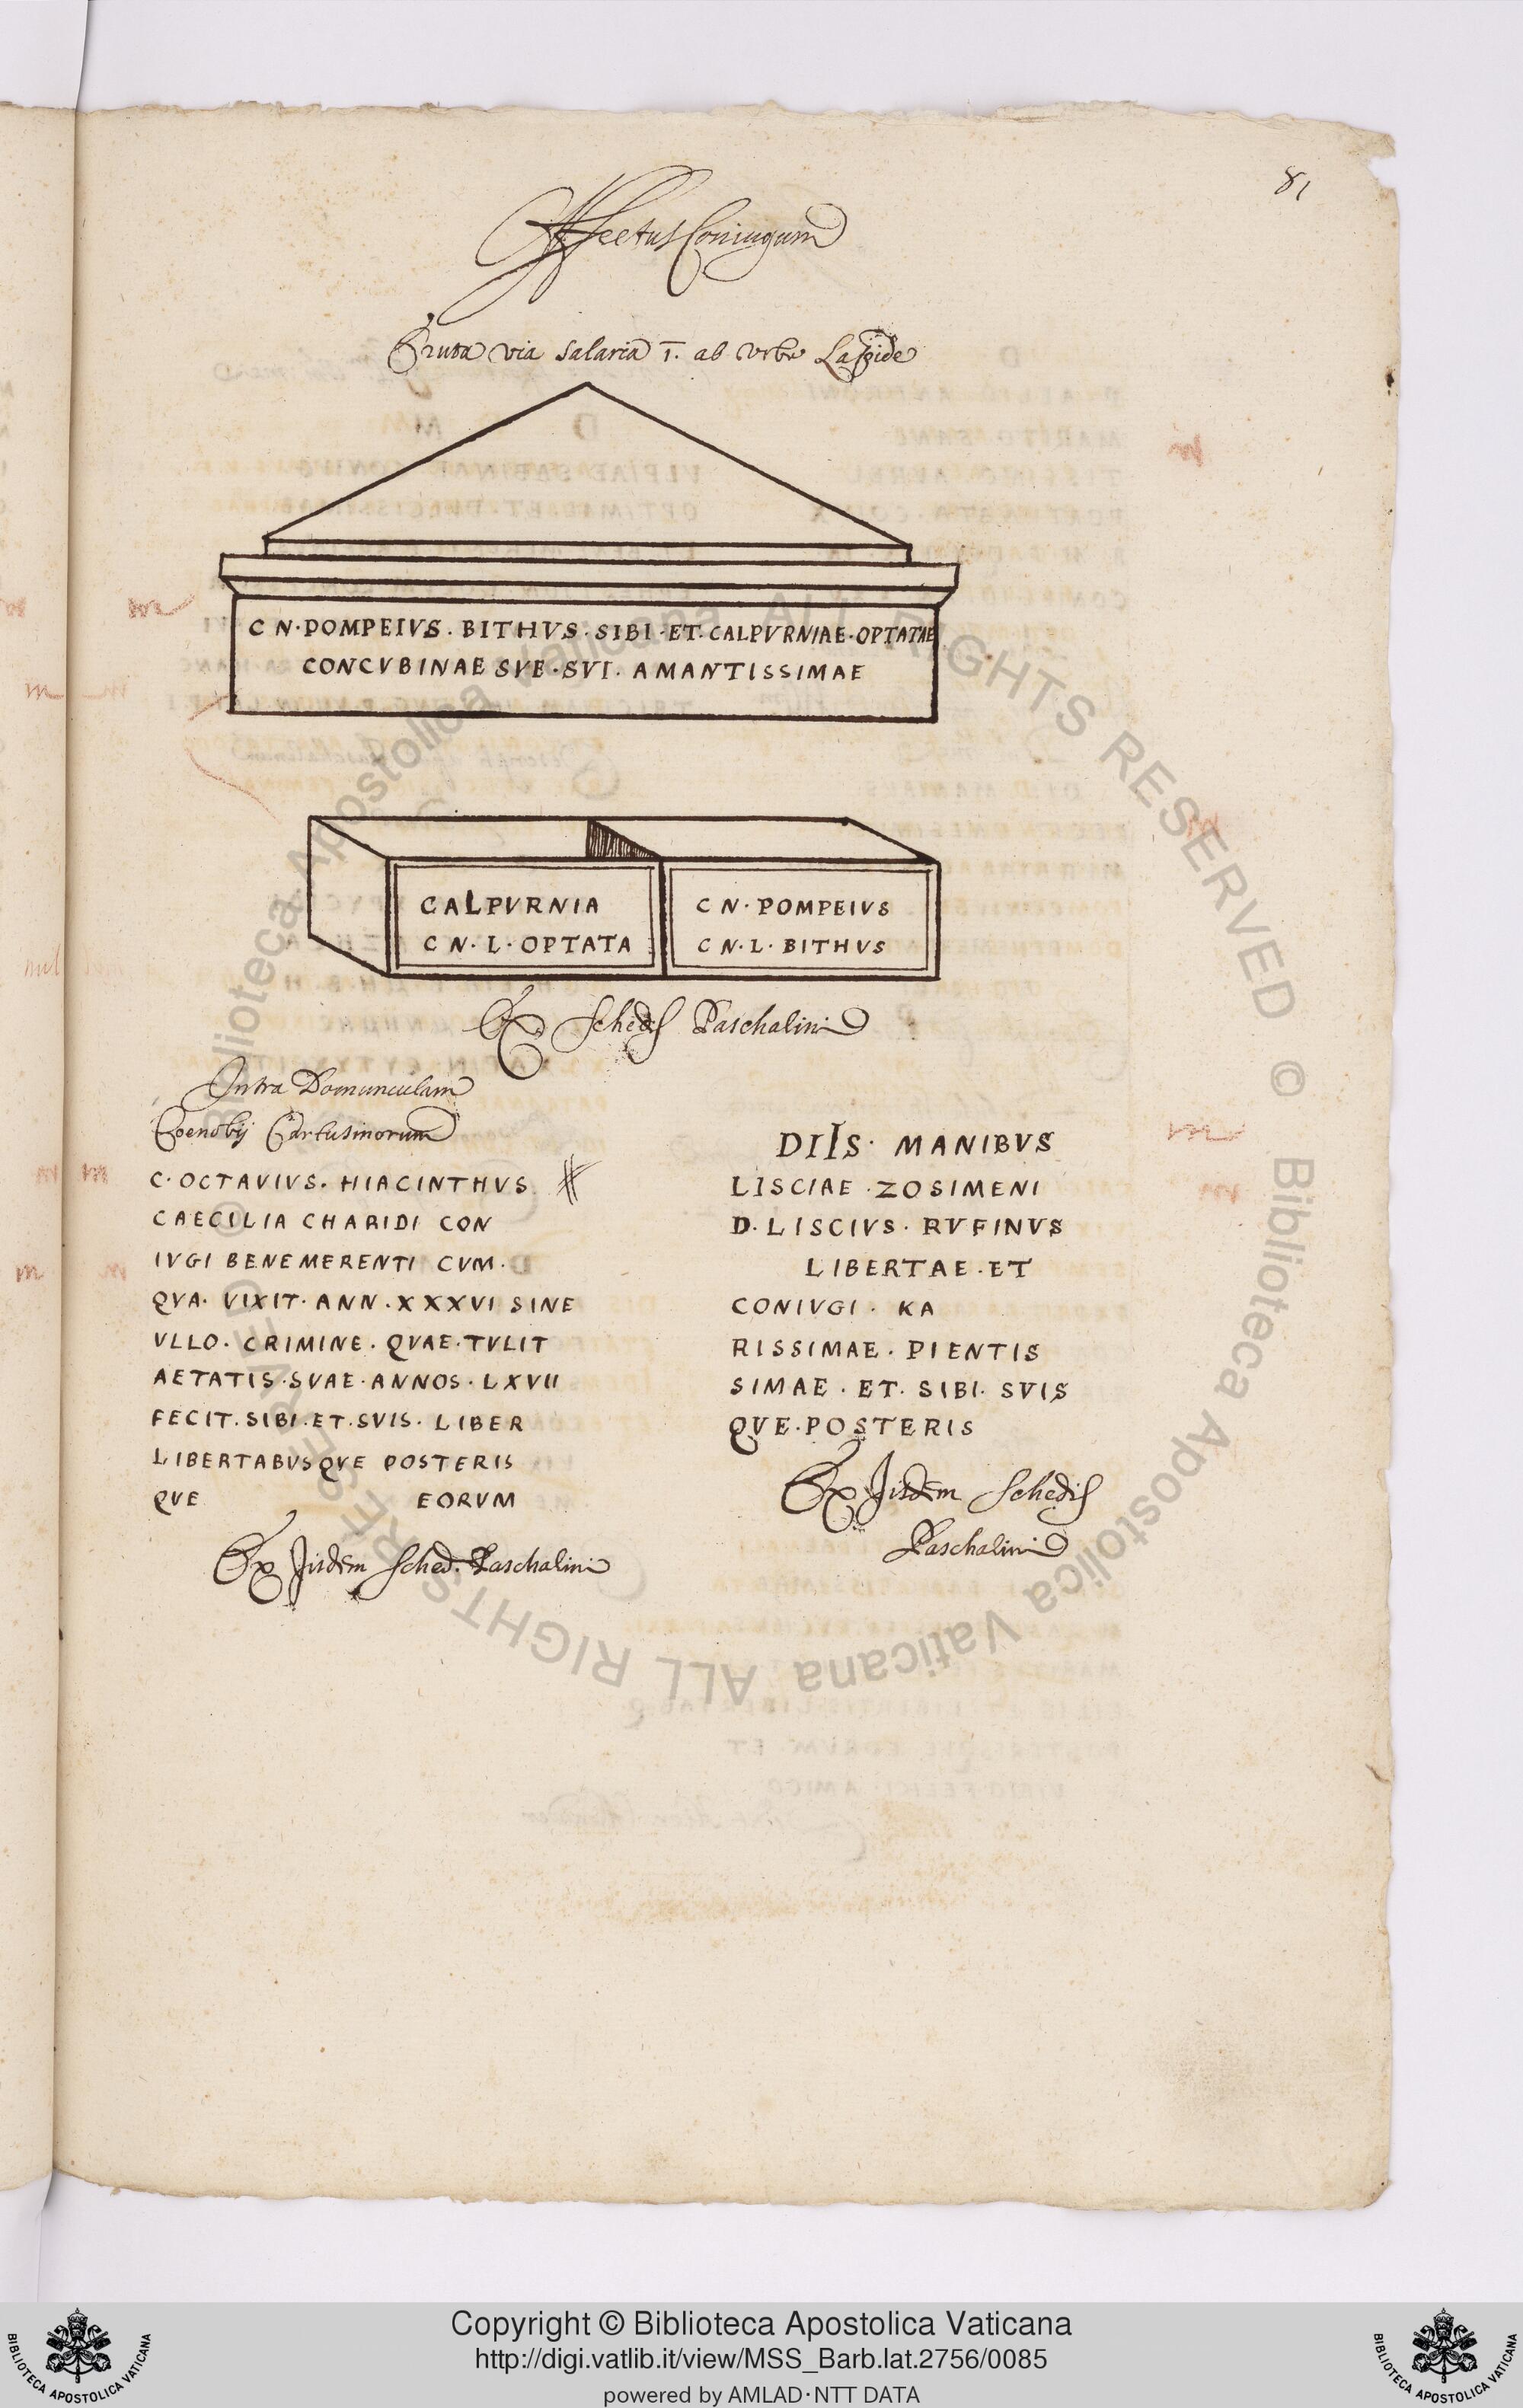 81
Affectus Coniugum
Eruta via Salaria I. ab Vrbe Lapide
CN·POMPEIVS·BITHVS·SIBI·ET·CALPVRNIAE·OPTATAE
CONCVBINAE SVE·SVI·AMANTISSIMAE
CALPVRNIA
CN·L·OPTATA
CN·POMPEIVS
CN·L·BITHVS
Ex Schedis Paschalini
Intra Domunculam
Coenobij Cartusinorum
C·OCTAVIVS·HIACINTHVS
CAECILIA CHARIDI CON
IVGI BENEMERENTI CVM·
QVA·VIXIT·ANN·XXXVI SINE
VLLO·CRIMINE·QVAE·TVLIT
AETATIS·SVAE·ANNOS·LXVII
FECIT·SIBI·ET·SVIS·LIBER
LIBERTABVSQVE POSTERIS
QVE EORVM
Ex Jisdem Sched. Paschalini
DIIS· MANIBVS
LISCIAE·ZOSIMENI
D·LISCIVS·RVFINVS
LIBERTAE·ET
CONIVGI·KA
RISSIMAE·PIENTIS
SIMAE·ET·SIBI·SVIS
QVE·POSTERIS
Ex Jisdem Schedis
Paschalini
© Biblioteca Apostolica Vaticana ALL RIGHTS RESERVED © Biblioteca Apostolica Vaticana ALL RIGHTS RESERVED
Copyright © Biblioteca Apostolica Vaticana
http://digi.vatlib.it/view/MSS_Barb.lat.2756/0085
powered by AMLAD·NTT DATA
BIBLIOTECA APOSTOLICA VATICANA
BIBLIOTECA APOSTOLICA VATICANA